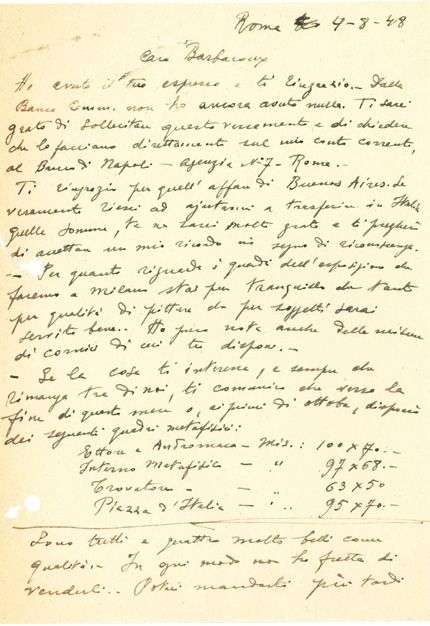 Roma 4-8-48
Caro Barbaroux
Ho avuto il tuo espresso e ti ringrazio. - Dalla
Banca Comm. non ho ancora avuto nulla. Ti sarei
grato di sollecitare questo versamento e di chiedere
che lo facciano direttamente sul mio conto corrente,
al Banco di Napoli - Agenzia N. 7 - Roma. -
Ti ringrazio per quell' affare di Buenos Aires. Se
veramente riesci ad aiutarmi a trasferire in Italia
quelle somme, te ne sarei molto grato e ti pregherei
di accettare un mio ricordo in segno di riconoscenza.
- Per quanto riguarda i quadri dell'esposizione che
faremo a Milano stai pur tranquillo che tanto
per qualità di pittura che per soggetti sarai
servito bene.. Ho preso nota anche delle misure
di cornici di cui tu disponi. -
- Se la cosa ti interessa, e sempre che
rimanga tra di noi, ti comunico che verso la
fine di questo mese o, ai primi di ottobre, disporrò
dei seguenti quadri metafisici:
Ettore e Andromaca - Mis.: 100 x 70. -
Interno Metafisico - " 97 x 68. -
Trovatore - - " 63 x 50
Piazza d'Italia - " .. 95 x 70. -
Sono tutti e quattro molto belli come
qualità. In ogni modo non ho fretta di
venderli.. Potrei mandarli più tardi